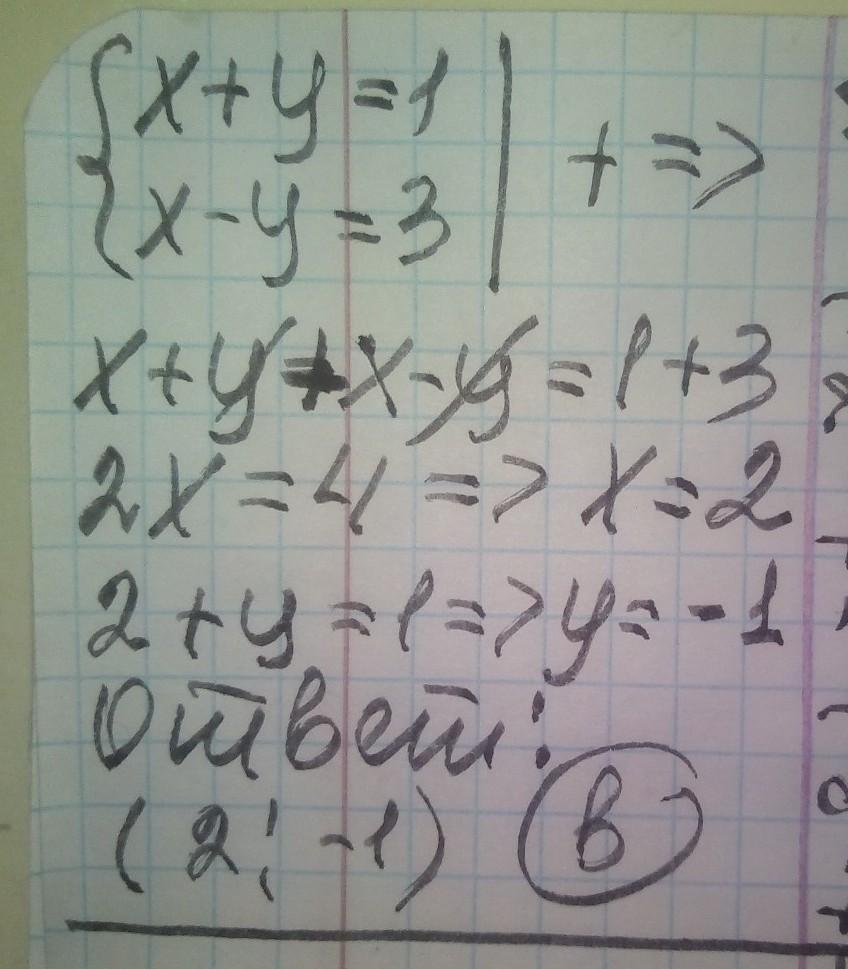 {x+y=1 | + =>
{x-y=3 |
x+y+x-y=1+3
2x=4 => x=2
2+y=1=>y=-1
Ответ:
(2; -1) В